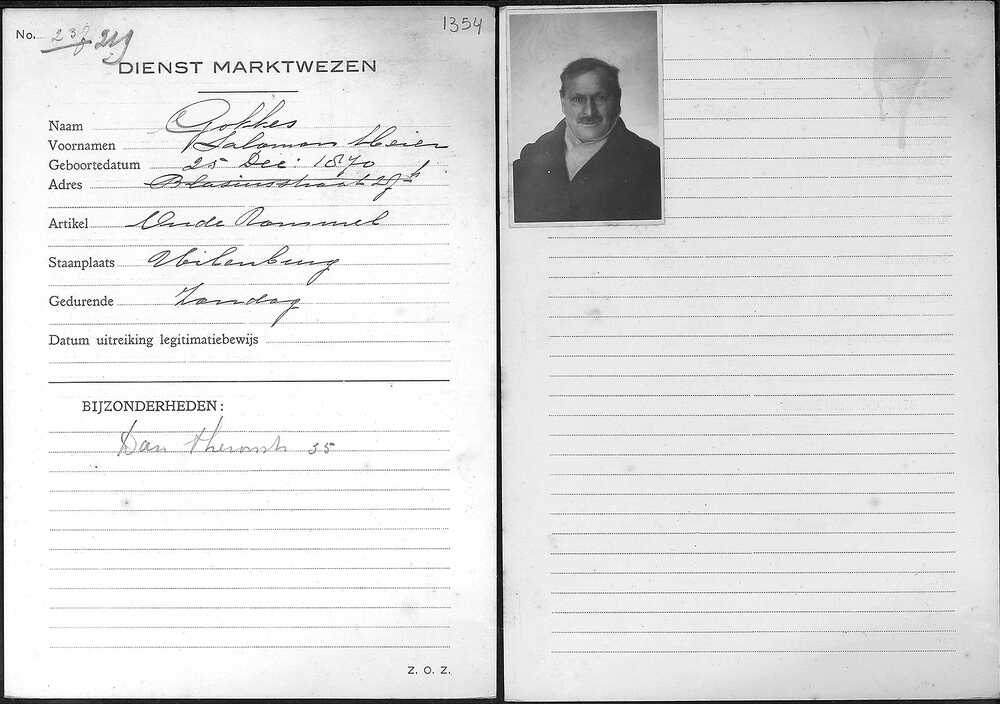 No. 1354
DIENST MARKTWEZEN
Naam Gokkes
Voornamen Salomon Meier
Geboortedatum 25 Dec: 1870
Adres Blasiusstraat
Artikel Oude Rommel
Staanplaats Uilenburg
Gedurende Zondag
Datum uitreiking legitimatiebewijs
BIJZONDERHEDEN:
Dan Theronstr 35
Z. O. Z.